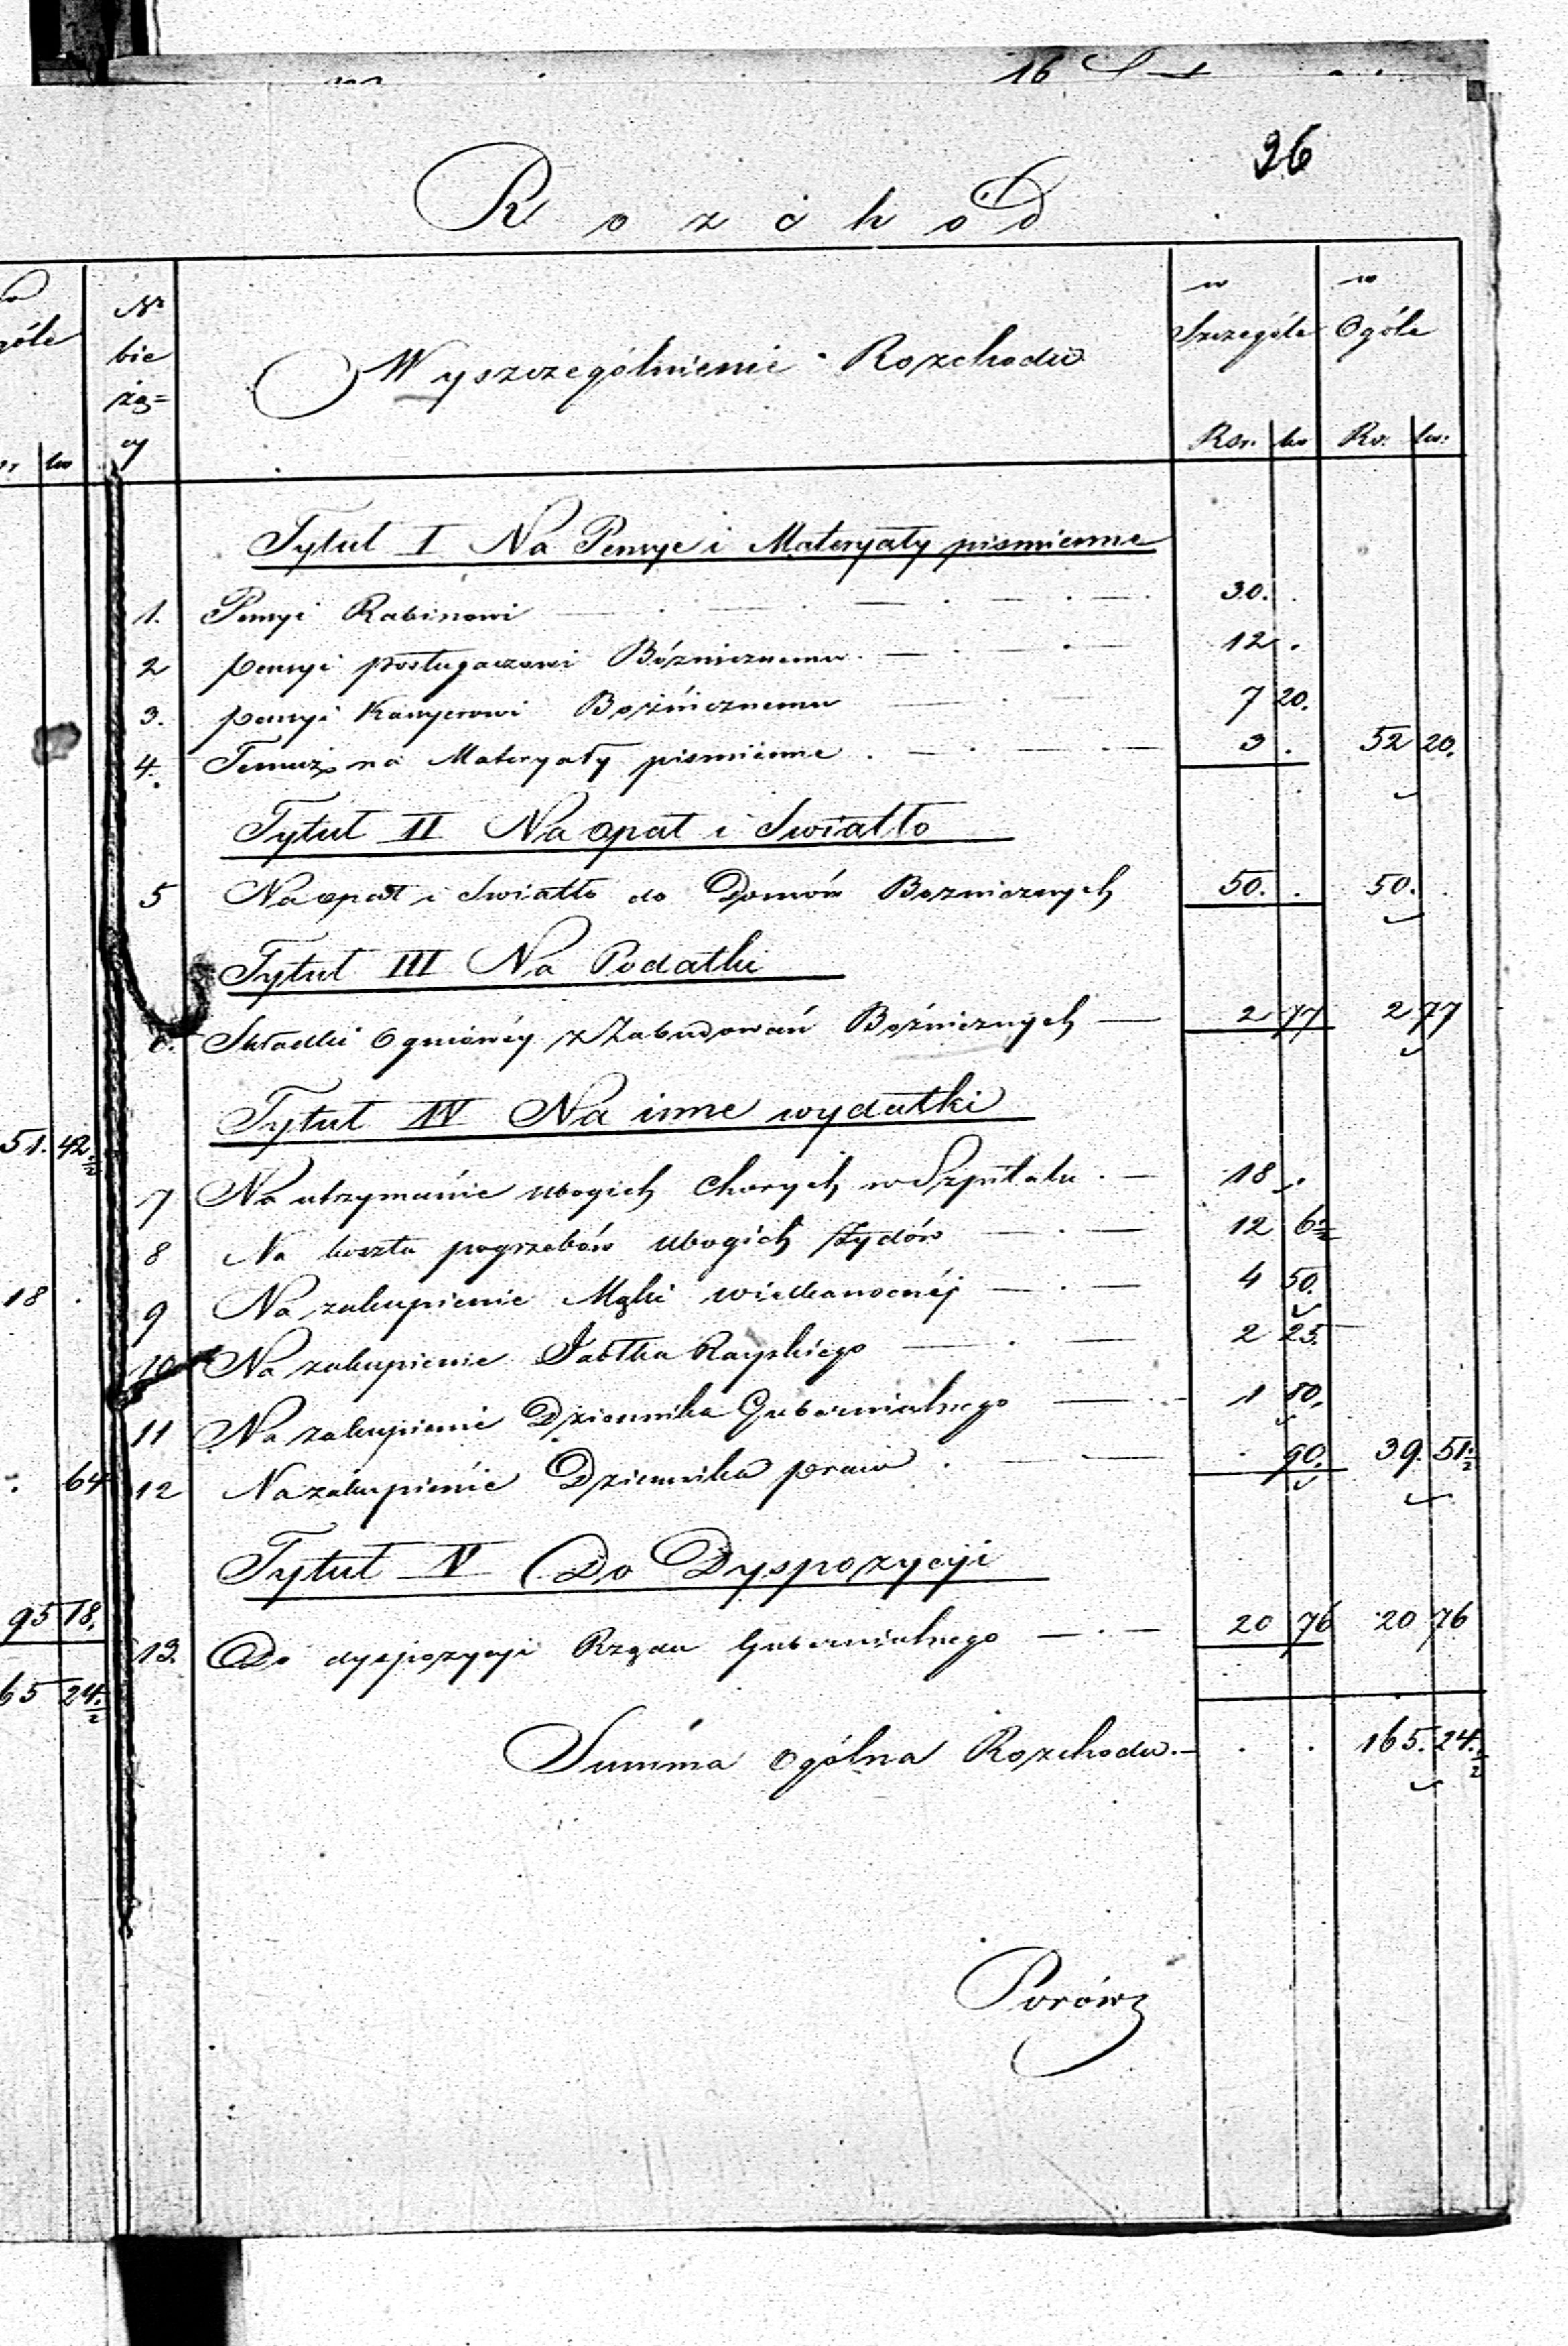 16
96
Rozchod
Nr bie żą= cy
Wyszczególnienie Rozchodu
w Szczególe
w Ogóle
Rsr. ko
Rs. ko:
góle
ko
Tytuł I Na Pensye i Materyały pismienne
1. Pensyi Rabinowi 30. .
2 pensyi posługaczowi Bóżnicznemu 12 .
3. pensyi Kassyerowi Bożnicznemu 7 20.
4. Temuż na Materyały pismienne 3 . 52 20.
Tytuł II Na opał i Swiatło
5 Na opał i Swiatło do Domów Boznicznych 50. . 50. .
Tytuł III Na Podatki
6. Składki Ogniowéy z Zabudowań Bożnicznych 2 77 2 77
Tytuł IV Na inne wydatki
51. 42 1/2
7 Na utrzymanie ubogich Chorych w Szpitalu 18 .
8 Na koszta pogrzebów ubogich Żydów 12 6 1/2
18 .
9 Na zakupienie Mąki wielkanocnéj 4 50.
10 Na zakupienie Jabłka Rayskiego 2 25.
11 Na zakupienie Dziennika Gubernialnego 1 80.
64
12 Na zakupienie Dziennika praw . 90. 39. 51 1/2
Tytuł V Do Dyspozycyi
95 18.
13. Do dyspozycyi Rządu Gubernialnego 20 76 20 76
65 24 1/2
Summa ogólna Rozchodu . . 165. 24 1/2
Porówn